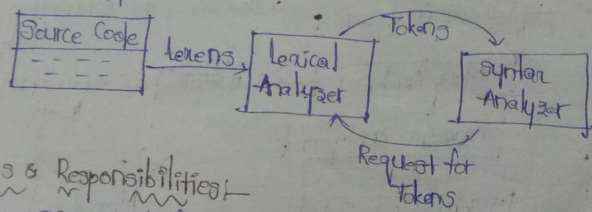 Source Code
lexens
Lexical
Analyzer
Tokens
Syntax
Analyzer
Request for
Tokens
s & Responsibilities:-